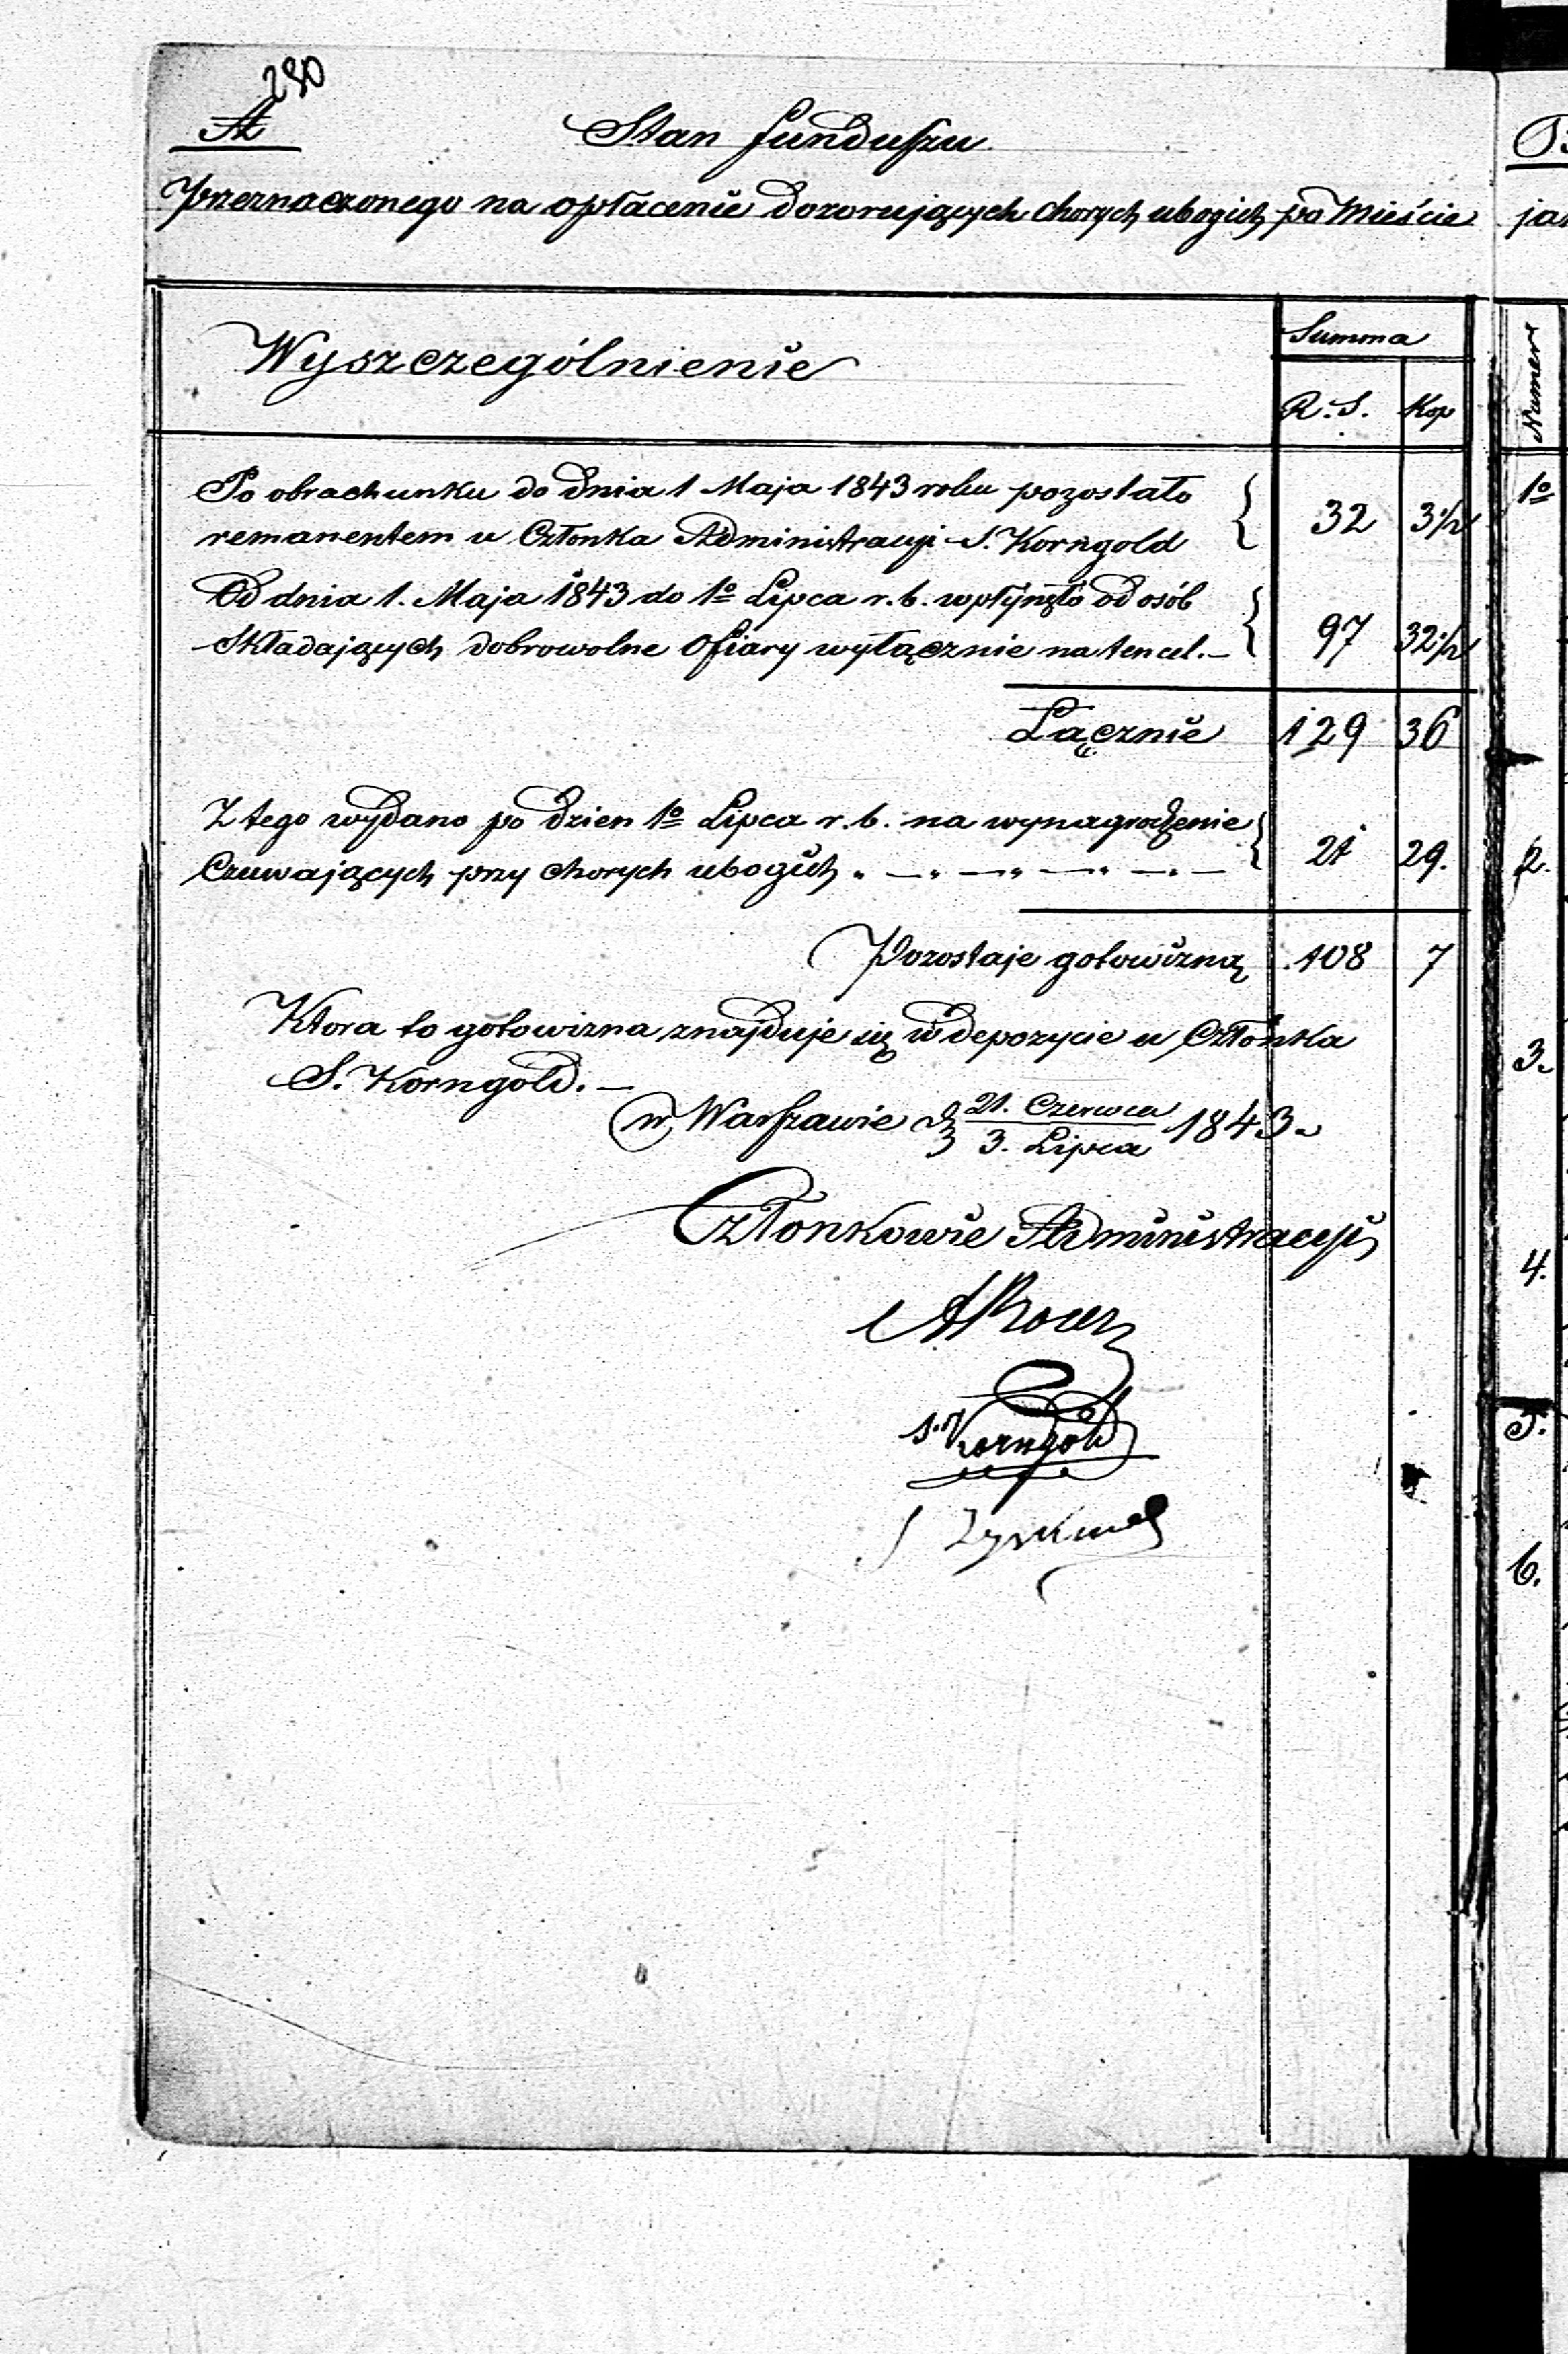 280
A
Stan funduszu
Przeznaczonego na opłacenie dozorujących chorych ubogich po Mieście
Wyszczególnienie
Summa
R. S. Kop
Po obrachunku do dnia 1 Maja 1843 roku pozostało
remanentem u Członka Administracyi S. Korngold 32 3 1/2
Od dnia 1. Maja 1843 do 1º Lipca r. b. wpłynęło od osób
Składających dobrowolne Ofiary wyłącznie na ten cel. — 97 32 1/2
Łącznie 129 36
Z tego wydano po dzien 1º Lipca r. b. na wynagrodzenie
Czuwających przy chorych ubogich 21 29.
Pozostaje gotowizną 108 7
Ktora to gotowizna znajduje się w depozycie u Członka
S. Korngold. —
w Warszawie d 21. Czerwca / 3. Lipca 1843.
Członkowie Administracyi
S. Korngold
Numer
1º
2.
3.
4.
5.
6.